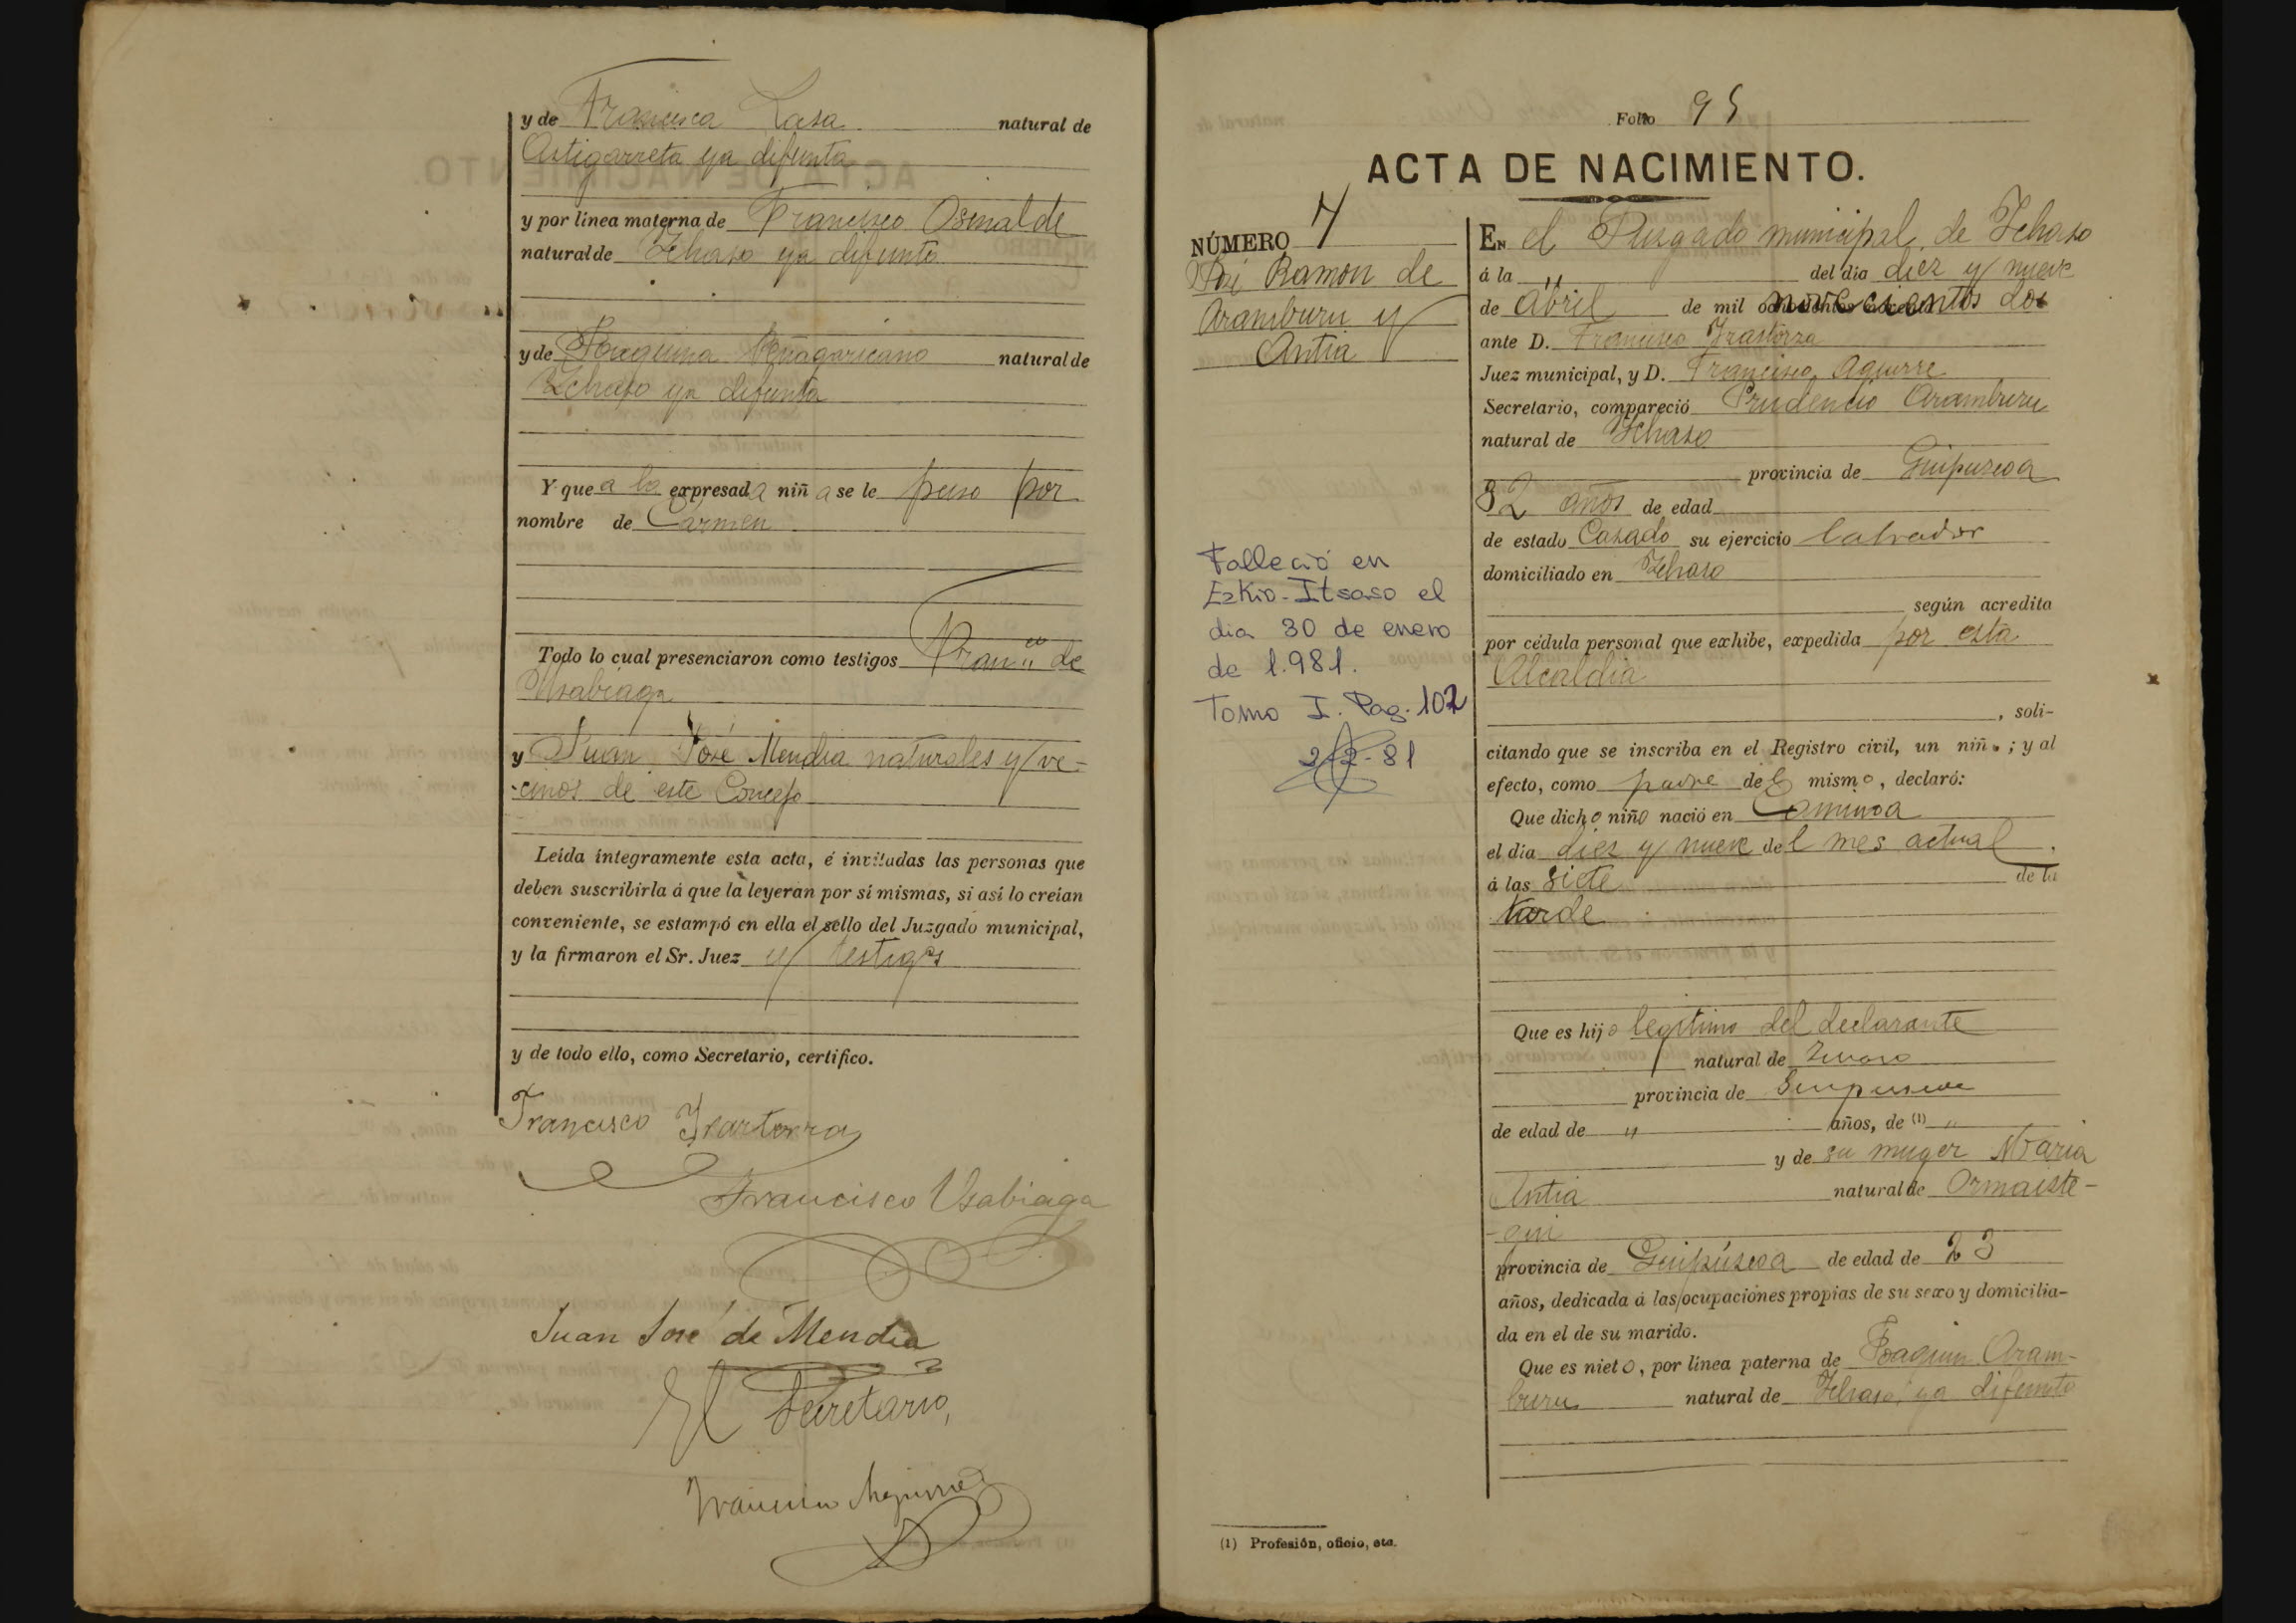 y de Francisca Lasa natural de
Astigarreta ya difunta
y por línea materna de Francisco Osinalde
natural de Ychaso ya difunto
y de Joaquina natural de
Ychaso ya difunta
Y que a la expresada niña se le puso por
nombre de Carmen
Todo lo cual presenciaron como testigos Fran.co de
Usabiaga
y Juan José Mendia naturales y ve-
-cinos de este Concejo
Leída íntegramente esta acta, é invitadas las personas que
deben suscribirla á que la leyeran por sí mismas, si así lo creían
conveniente, se estampó en ella el sello del Juzgado municipal,
y la firmaron el Sr. Juez y testigos
y de todo ello, como Secretario, certifico.
Francisco Yrastorza
Francisco Usabiaga
Juan José de Mendia
El Secretario,
Francisco Aguirre
Folio 95
ACTA DE NACIMIENTO.
NÚMERO 7
José Ramon de
Aramburu y
Antia
Falleció en
Ezkio-Itsaso el
dia 30 de enero
de 1.981.
Tomo I. Pag. 102
2-2-81
EN el Juzgado municipal de Ychaso
á la " del día diez y nueve
de Abril de mil novecientos dos
ante D. Francisco Yrastorza
Juez municipal, y D. Francisco Aguirre
Secretario, compareció Prudencio Aramburu
natural de Ychaso
provincia de Guipuzcoa
32 años de edad
de estado Casado su ejercicio labrador
domiciliado en Ychaso
según acredita
por cédula personal que exhibe, expedida por esta
Alcaldia
, soli-
citando que se inscriba en el Registro civil, un niño; y al
efecto, como padre del mismo, declaró:
Que dicho niño nació en Caminoa
el día diez y nueve del mes actual.
á las siete de la
tarde
Que es hijo legítimo del declarante
natural de Ychaso
provincia de Guipuzcoa
de edad de " años, de (1) "
y de su muger Maria
Antia natural de Ormaizte-
-gui
provincia de Guipúzcoa de edad de 23
años, dedicada á las ocupaciones propias de su sexo y domicilia-
da en el de su marido.
Que es nieto, por línea paterna de Joaquin Aram-
buru natural de Ychaso, ya difunto
(1) Profesión, oficio, etc.